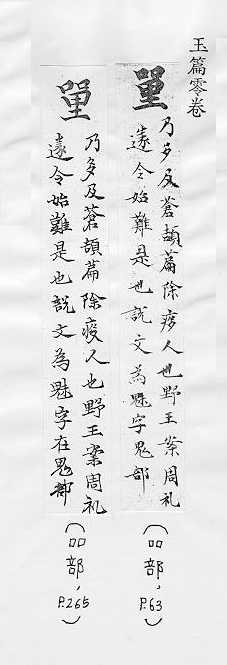 玉篇零卷
乃多反蒼頡篇除疫人也野王案周礼
遂令始難是也說文為魌字鬼部
(吅部,P.63)
乃多反蒼頡篇除疫人也野王案周礼
遂令始難是也說文為魌字在鬼部
(吅部,P.265)